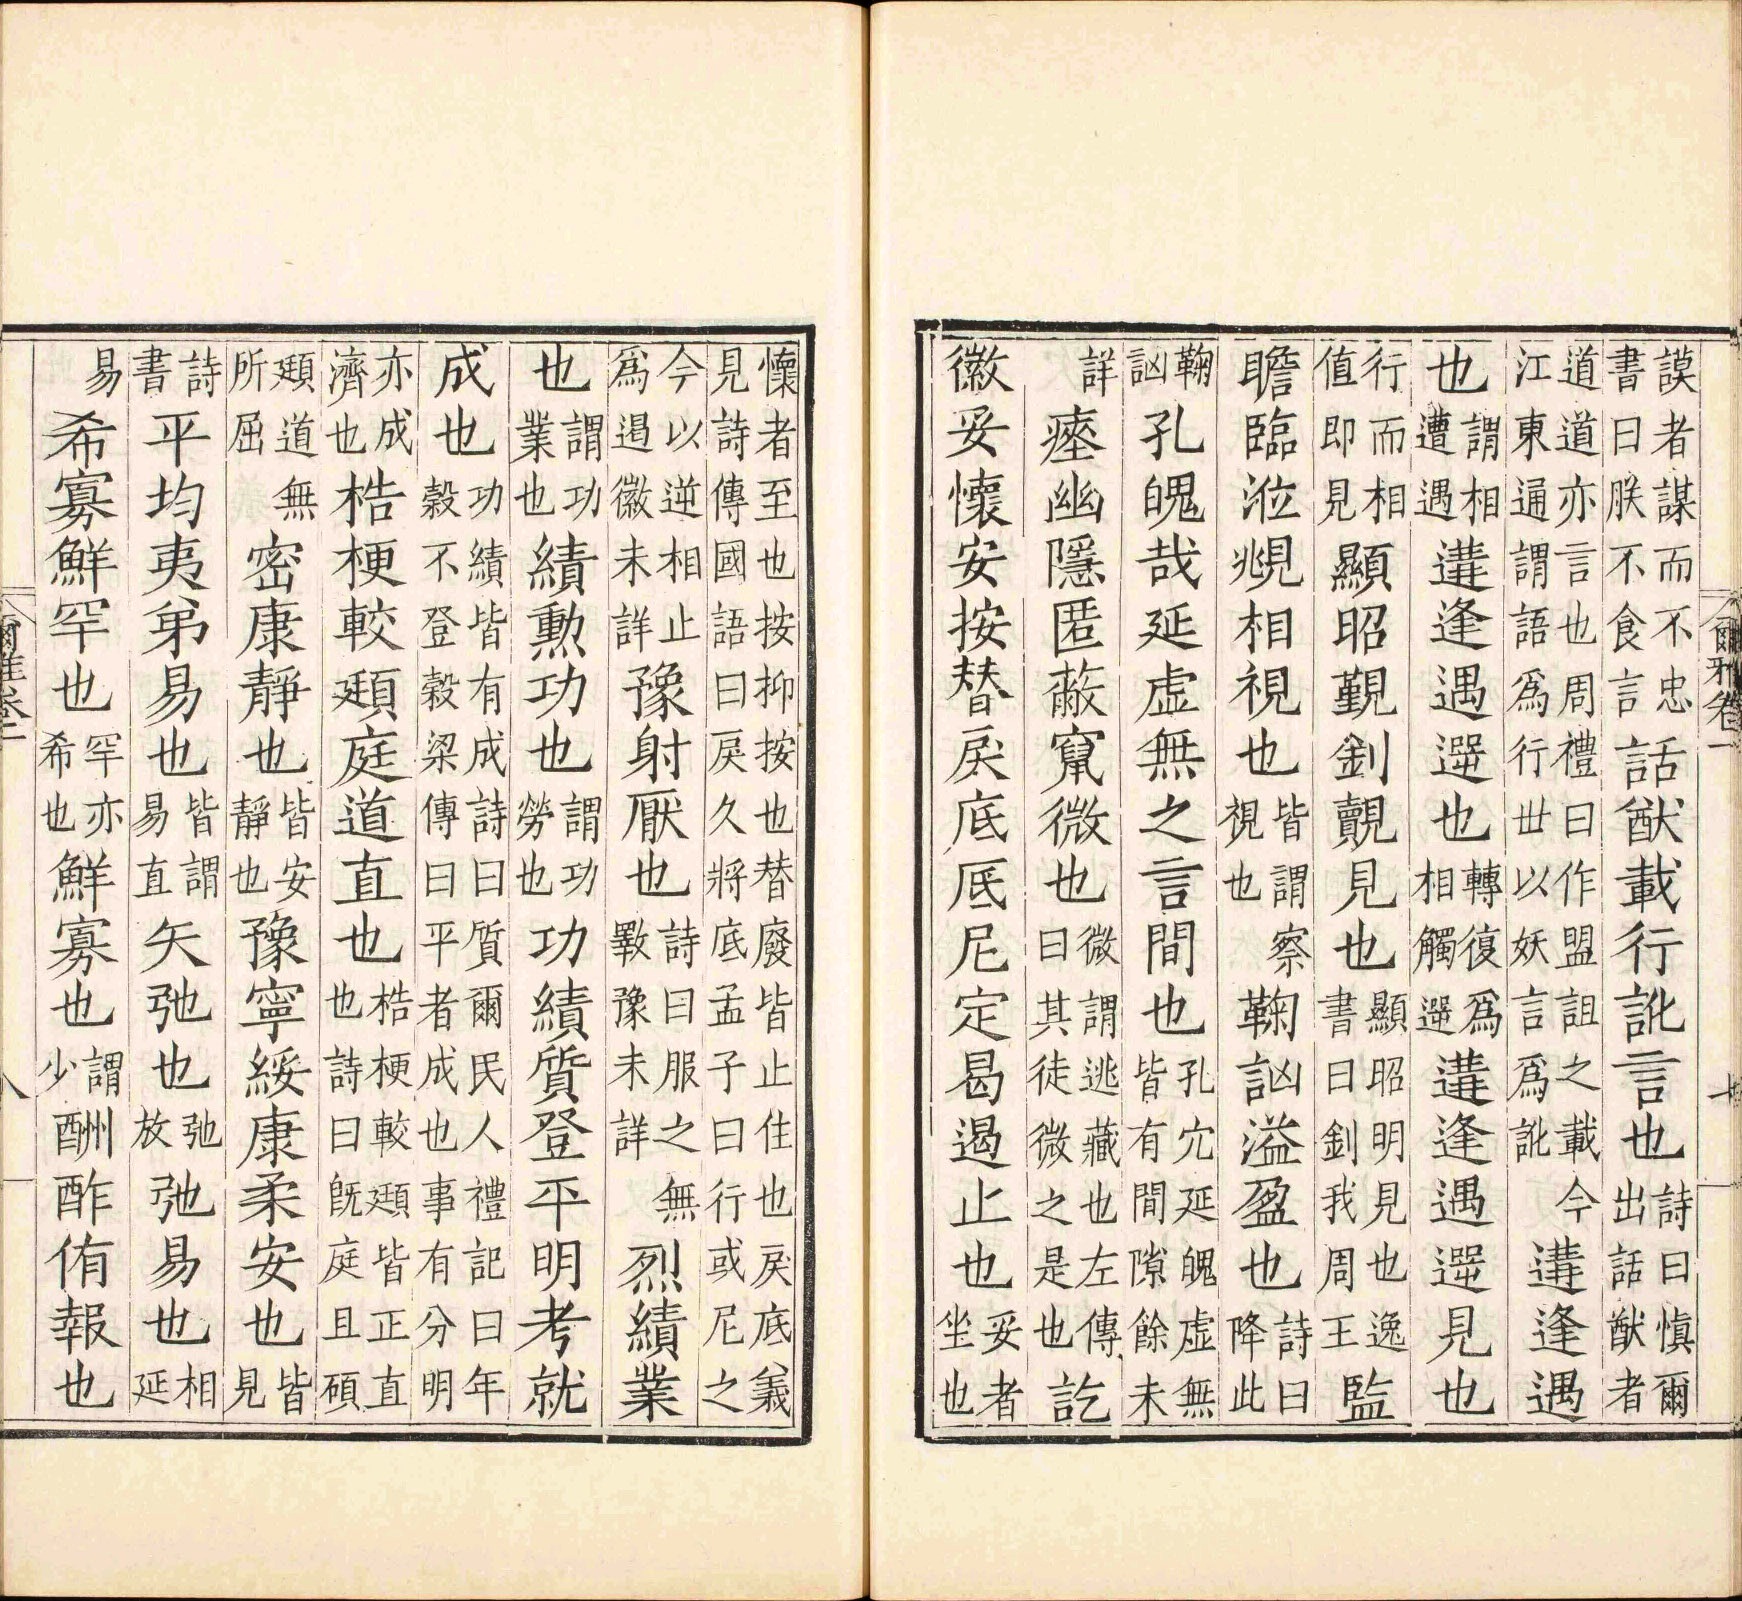 爾雅卷一
謨者謀而不忠書曰朕不食言話猷載行訛言也詩曰慎爾出話猷者
道道亦言也周禮曰作盟詛之載今江東通謂語爲行丗以妖言爲訛遘逢遇
也謂相遭遇遘逢遇遻也轉復爲相觸遻遘逢遇遻見也
行而相值即見顯昭覲釗覿見也顯昭明見也逸書曰釗我周王監
瞻臨涖覜相視也皆謂察視也鞠訩溢盈也詩曰降此
鞠訩孔魄哉延虛無之言間也孔穴延魄虛無皆有間隙餘未
詳瘞幽隱匿蔽竄微也微謂逃藏也左傳曰其徒微之是也訖
徽妥懷安按替戾底厎尼定曷遏止也妥者坐也
懷者至也按抑按也替廢皆止住也戾底義見詩傳國語曰戾久將底孟子曰行或尼之
今以逆相止爲遏徽未詳豫射厭也詩曰服之無斁豫未詳烈績業
也謂功業也績勳功也謂功勞也功績質登平明考就
成也功績皆有成詩曰質爾民人禮記曰年穀不登穀梁傳曰平者成也事有分明
亦成濟也梏梗較頲庭道直也梏梗較頲皆正直也詩曰旣庭且碩
頲道無所屈密康靜也皆安靜也豫寧綏康柔安也皆見
詩書平均夷弟易也皆謂易直矢弛也弛放弛易也相延
易希寡鮮罕也罕亦希也鮮寡也謂少酬酢侑報也